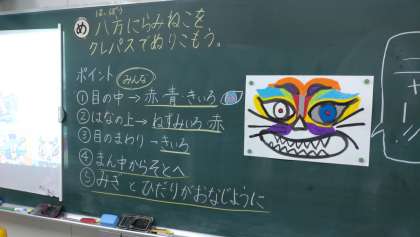 め 八方にらみねこを
はっぽう
クレパスでぬりこもう。
ポイント みんな
①目の中→赤 青 きいろ
②はなの上→ねずみいろ 赤
③目のまわり→きいろ
④まん中からそとへ
⑤みぎとひだりがおなじように